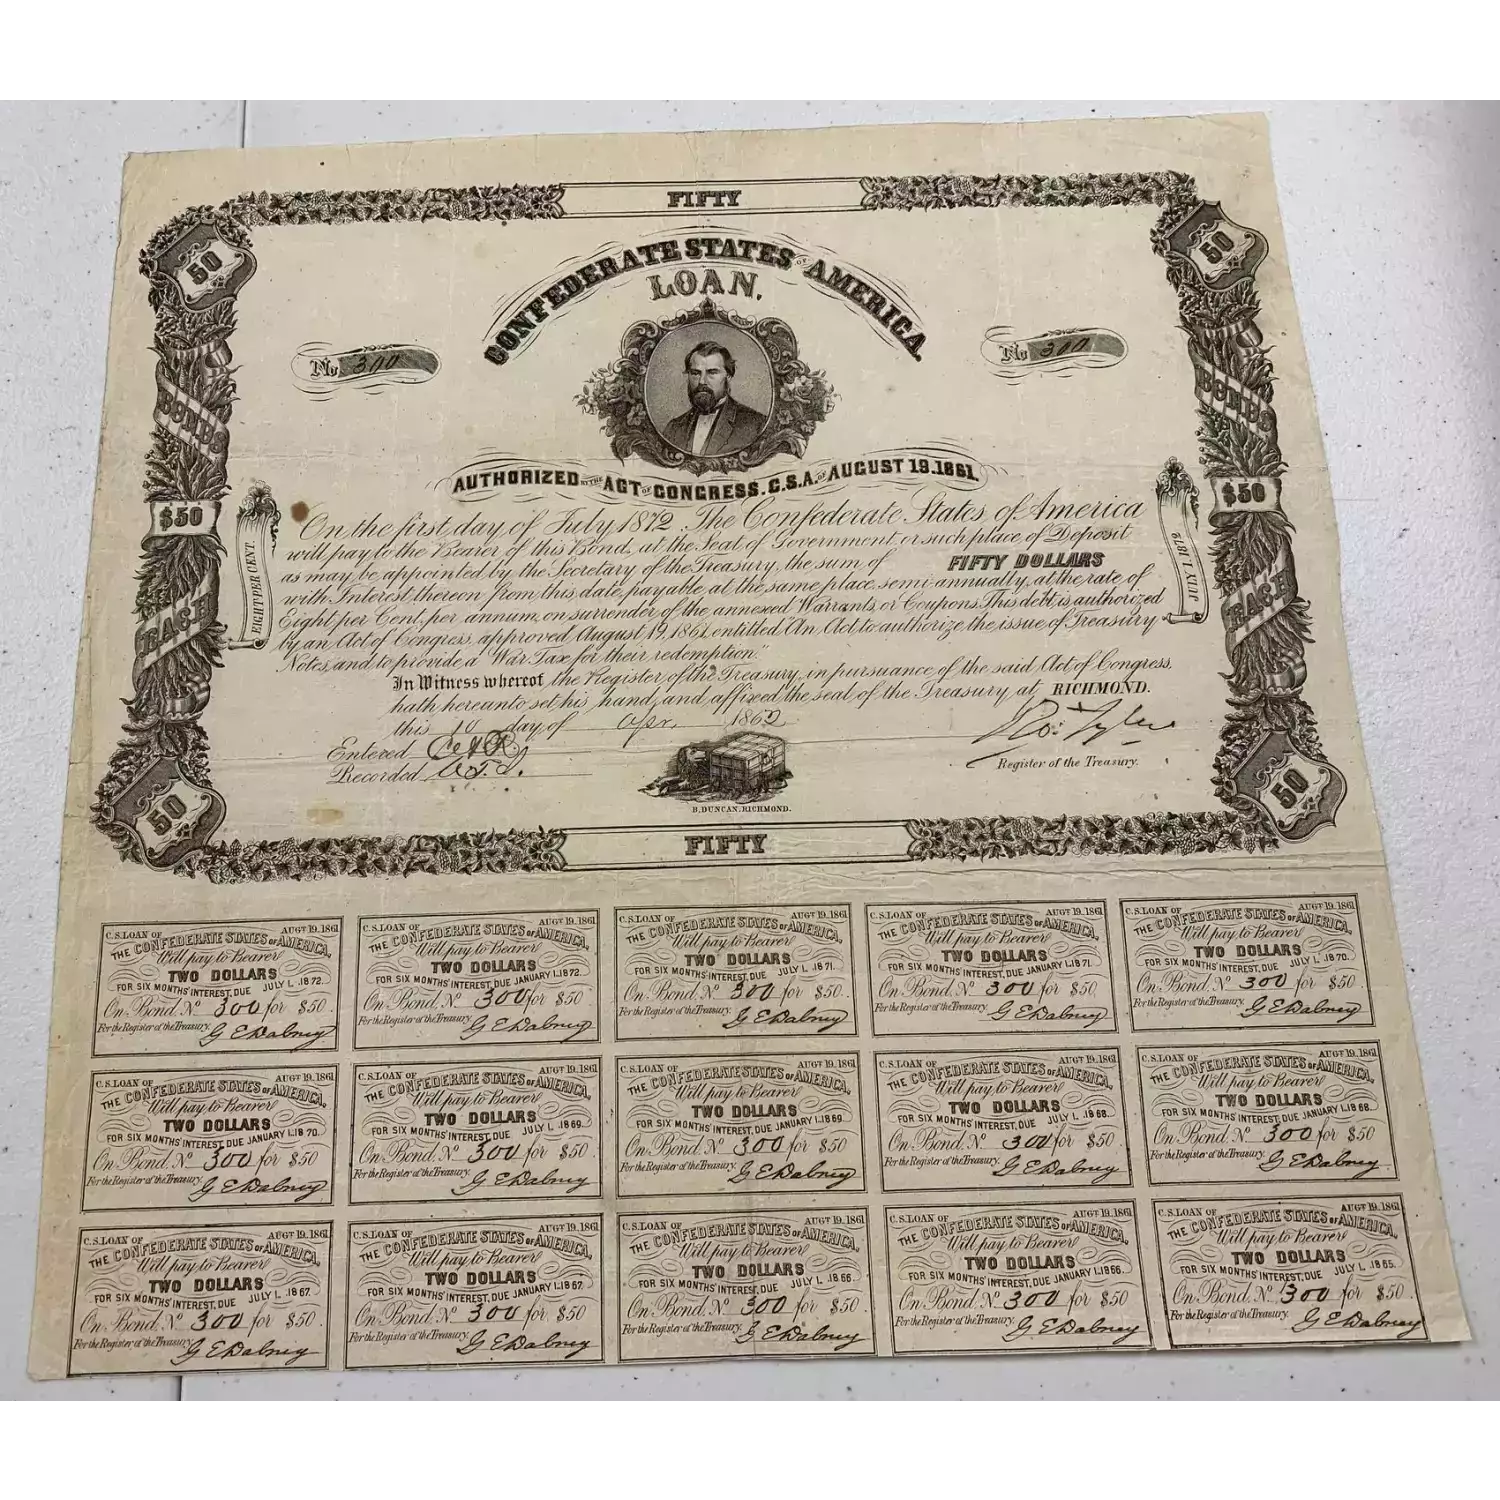 FIFTY
50
50
CONFEDERATE STATES OF AMERICA.
LOAN.
No 300
No 300
BONDS
BONDS
AUTHORIZED BY THE ACT OF CONGRESS. C.S.A. OF AUGUST 19.1861.
$50
$50
EIGHT PER CENT.
JULY 1. 1872.
EACH
EACH
On the first day of July 1872, The Confederate States of America
will pay to the Bearer of this Bond, at the Seat of Government, or such place of Deposit
as may be appointed by the Secretary of the Treasury, the sum of FIFTY DOLLARS
with Interest thereon from this date, payable at the same place, semi-annually, at the rate of
Eight per Cent, per annum, on surrender of the annexed Warrants, or Coupons. This debt, is authorized
by an Act of Congress, approved August 19, 1861, entitled "An Act to authorize the issue of Treasury
Notes, and to provide a War Tax for their redemption."
In Witness whereof the Register of the Treasury, in pursuance of the said Act of Congress,
hath hereunto set his hand, and affixed the seal of the Treasury, at RICHMOND.
this 10 day of Apr. 1862
Entered
Recorded
Ro. Tyler
Register of the Treasury.
B. DUNCAN. RICHMOND.
50
50
FIFTY
C.S. LOAN OF AUGT 19. 1861
THE CONFEDERATE STATES OF AMERICA,
Will pay to Bearer
TWO DOLLARS
FOR SIX MONTHS' INTEREST, DUE JULY 1. 1872.
On Bond. No 300 for $50.
For the Register of the Treasury. G E Dabney
C.S. LOAN OF AUGT 19. 1861
THE CONFEDERATE STATES OF AMERICA,
Will pay to Bearer
TWO DOLLARS
FOR SIX MONTHS' INTEREST, DUE JANUARY 1. 1872.
On Bond. No 300 for $50.
For the Register of the Treasury. G E Dabney
C.S. LOAN OF AUGT 19. 1861
THE CONFEDERATE STATES OF AMERICA,
Will pay to Bearer
TWO DOLLARS
FOR SIX MONTHS' INTEREST, DUE JULY 1. 1871.
On Bond. No 300 for $50.
For the Register of the Treasury. G E Dabney
C.S. LOAN OF AUGT 19. 1861
THE CONFEDERATE STATES OF AMERICA,
Will pay to Bearer
TWO DOLLARS
FOR SIX MONTHS' INTEREST, DUE JANUARY 1. 1871.
On Bond. No 300 for $50.
For the Register of the Treasury. G E Dabney
C.S. LOAN OF AUGT 19. 1861
THE CONFEDERATE STATES OF AMERICA,
Will pay to Bearer
TWO DOLLARS
FOR SIX MONTHS' INTEREST, DUE JULY 1. 1870.
On Bond. No 300 for $50.
For the Register of the Treasury. G E Dabney
C.S. LOAN OF AUGT 19. 1861
THE CONFEDERATE STATES OF AMERICA,
Will pay to Bearer
TWO DOLLARS
FOR SIX MONTHS' INTEREST, DUE JANUARY 1. 1870.
On Bond. No 300 for $50
For the Register of the Treasury. G E Dabney
C.S. LOAN OF AUGT 19. 1861
THE CONFEDERATE STATES OF AMERICA,
Will pay to Bearer
TWO DOLLARS
FOR SIX MONTHS' INTEREST, DUE JULY 1. 1869.
On Bond. No 300 for $50.
For the Register of the Treasury. G E Dabney
C.S. LOAN OF AUGT 19. 1861
THE CONFEDERATE STATES OF AMERICA,
Will pay to Bearer
TWO DOLLARS
FOR SIX MONTHS' INTEREST, DUE JANUARY 1. 1869.
On Bond. No 300 for $50
For the Register of the Treasury. G E Dabney
C.S. LOAN OF AUGT 19. 1861
THE CONFEDERATE STATES OF AMERICA,
Will pay to Bearer
TWO DOLLARS
FOR SIX MONTHS' INTEREST, DUE JULY 1. 1868.
On Bond. No 300 for $50.
For the Register of the Treasury. G E Dabney
C.S. LOAN OF AUGT 19. 1861
THE CONFEDERATE STATES OF AMERICA,
Will pay to Bearer
TWO DOLLARS
FOR SIX MONTHS' INTEREST, DUE JANUARY 1. 1868.
On Bond. No 300 for $50.
For the Register of the Treasury. G E Dabney
C.S. LOAN OF AUGT 19. 1861
THE CONFEDERATE STATES OF AMERICA,
Will pay to Bearer
TWO DOLLARS
FOR SIX MONTHS' INTEREST, DUE JULY 1. 1867.
On Bond. No 300 for $50.
For the Register of the Treasury. G E Dabney
C.S. LOAN OF AUGT 19. 1861
THE CONFEDERATE STATES OF AMERICA,
Will pay to Bearer
TWO DOLLARS
FOR SIX MONTHS' INTEREST, DUE JANUARY 1. 1867.
On Bond. No 300 for $50
For the Register of the Treasury. G E Dabney
C.S. LOAN OF AUGT 19. 1861
THE CONFEDERATE STATES OF AMERICA,
Will pay to Bearer
TWO DOLLARS
FOR SIX MONTHS' INTEREST, DUE JULY 1. 1866.
On Bond. No 300 for $50.
For the Register of the Treasury. G E Dabney
C.S. LOAN OF AUGT 19. 1861
THE CONFEDERATE STATES OF AMERICA,
Will pay to Bearer
TWO DOLLARS
FOR SIX MONTHS' INTEREST, DUE JANUARY 1. 1866.
On Bond. No 300 for $50.
For the Register of the Treasury. G E Dabney
C.S. LOAN OF AUGT 19. 1861
THE CONFEDERATE STATES OF AMERICA,
Will pay to Bearer
TWO DOLLARS
FOR SIX MONTHS' INTEREST, DUE JULY 1. 1865.
On Bond. No 300 for $50.
For the Register of the Treasury. G E Dabney